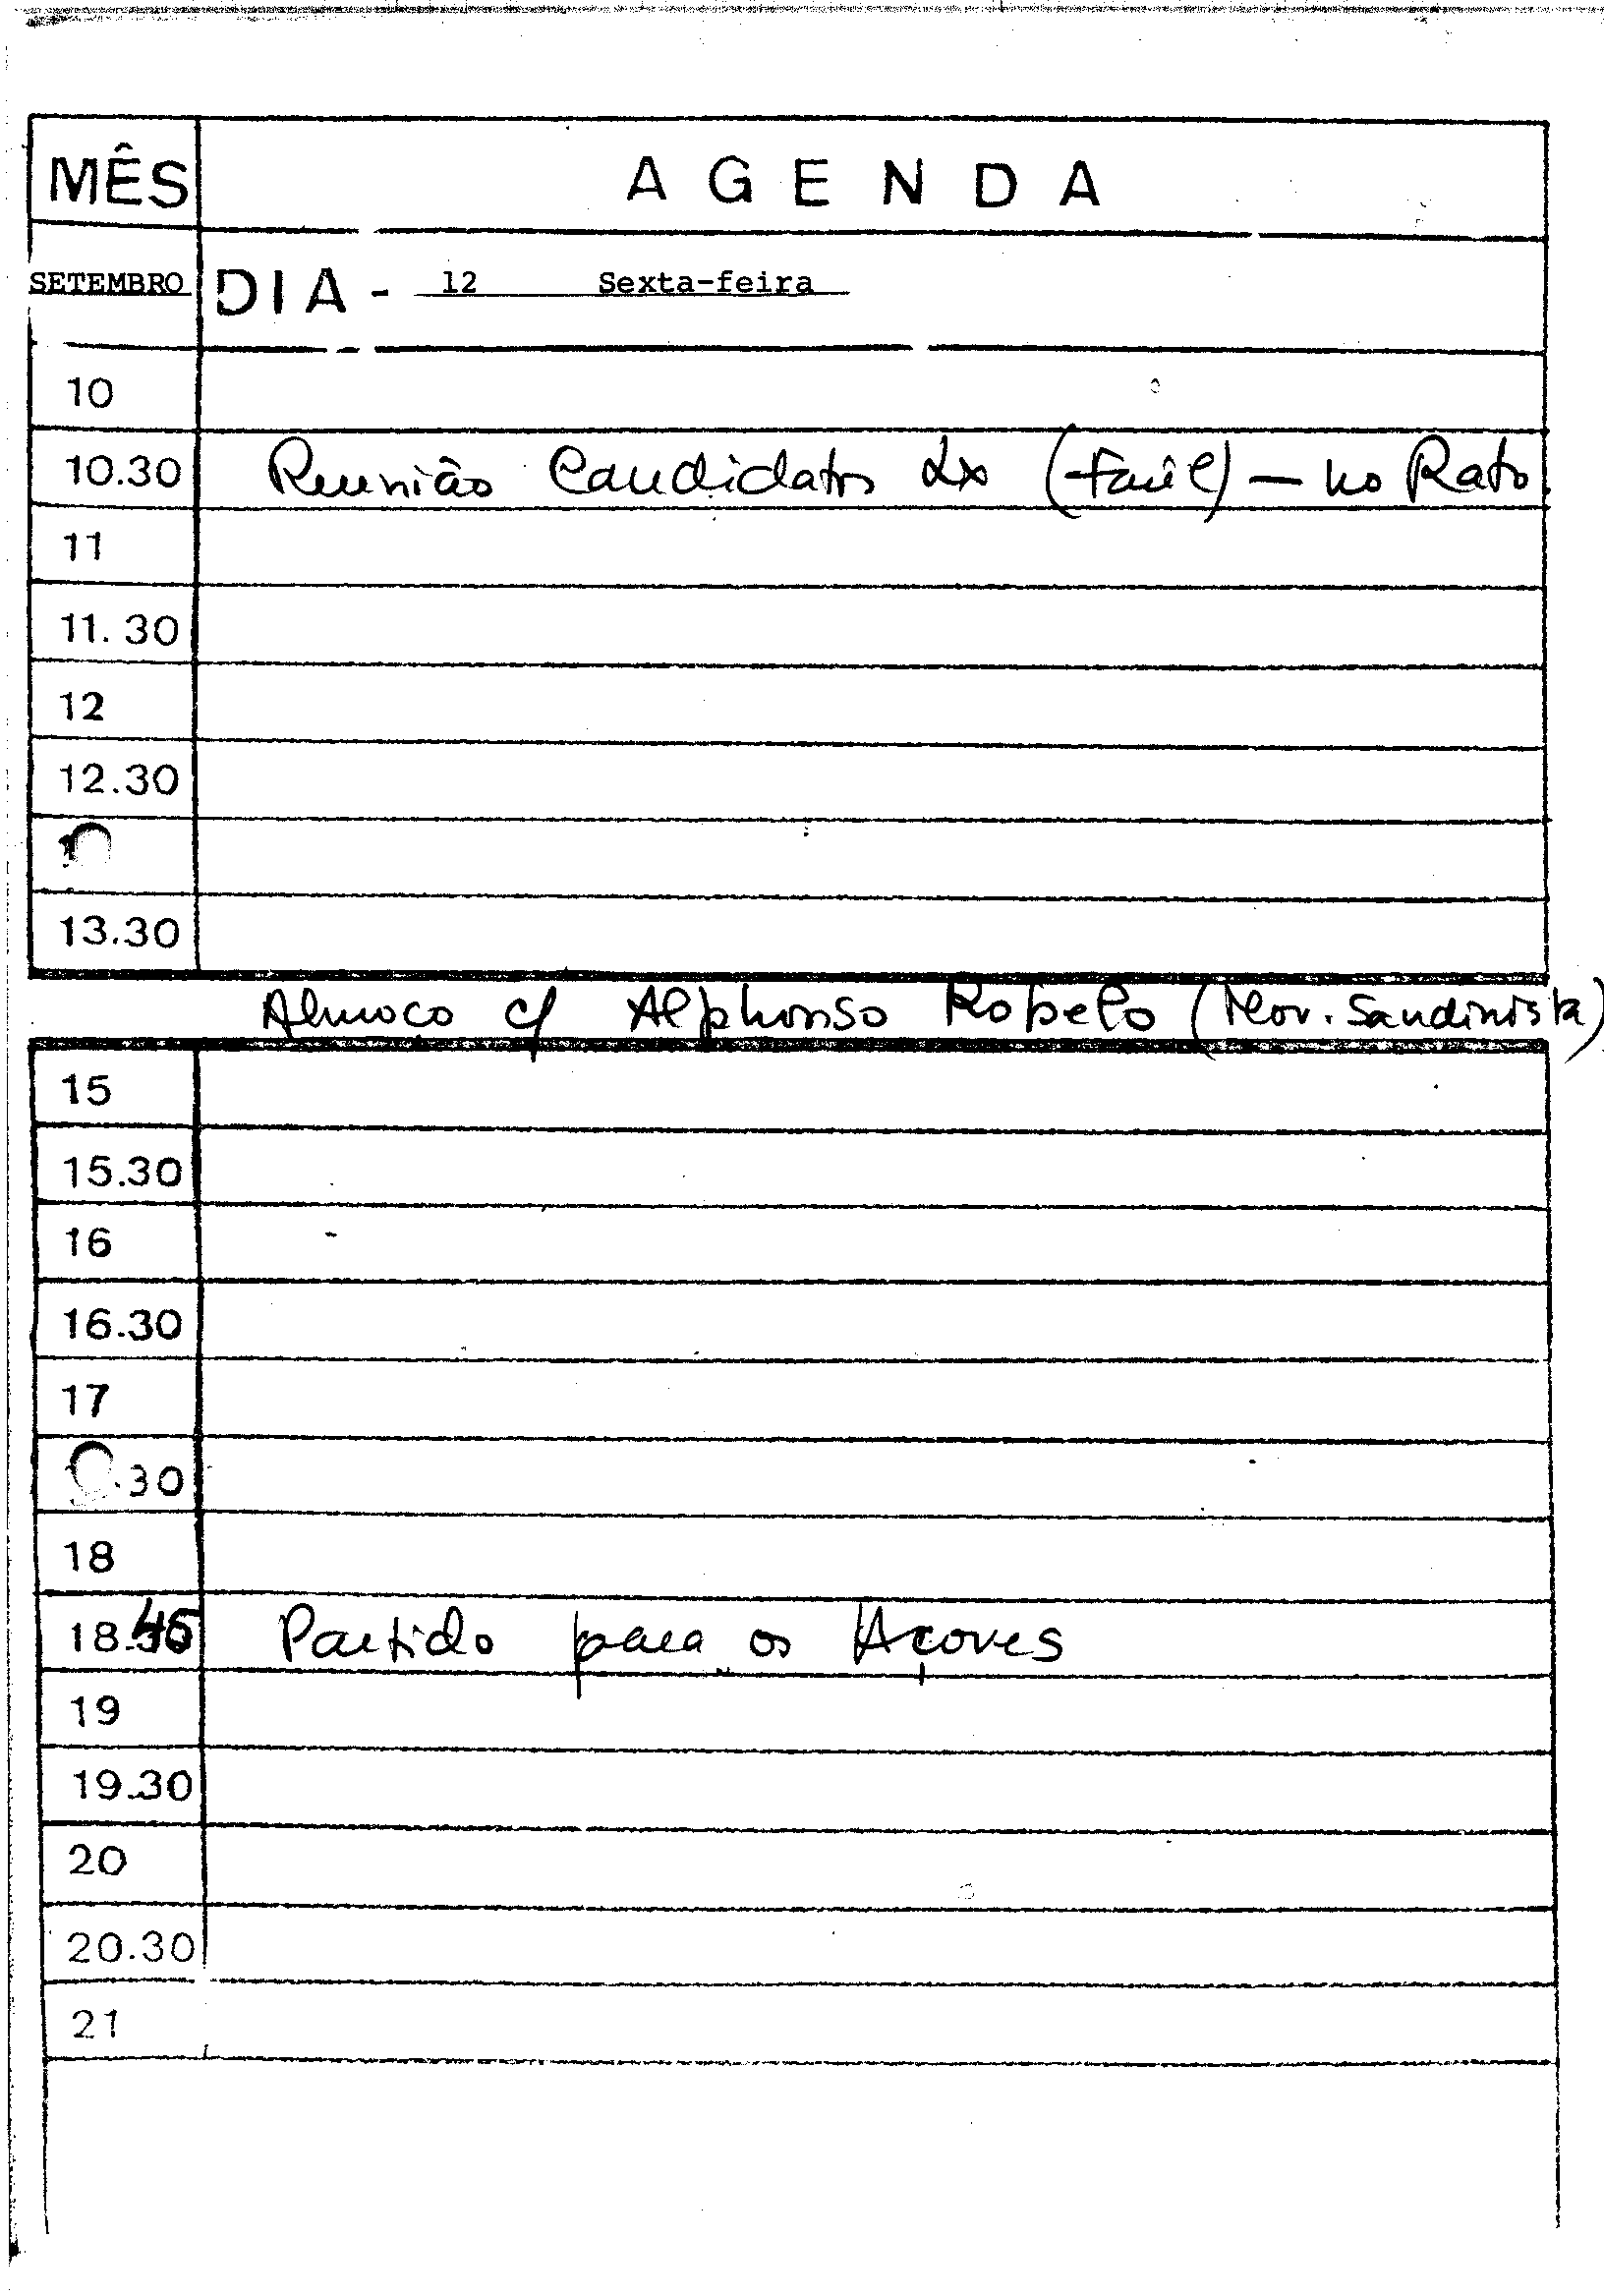 MÊS AGENDA
SETEMBRO DIA - 12 Sexta-feira
10
10.30 Reunião Candidatos Lx () - no Rato
11
11.30
12
12.30
13.30
Almoço c/ Alphonso Robelo (Mov. Sandinista)
15
15.30
16
16.30
17
.30
18
18.45 Partida para os Açores
19
19.30
20
20.30
21